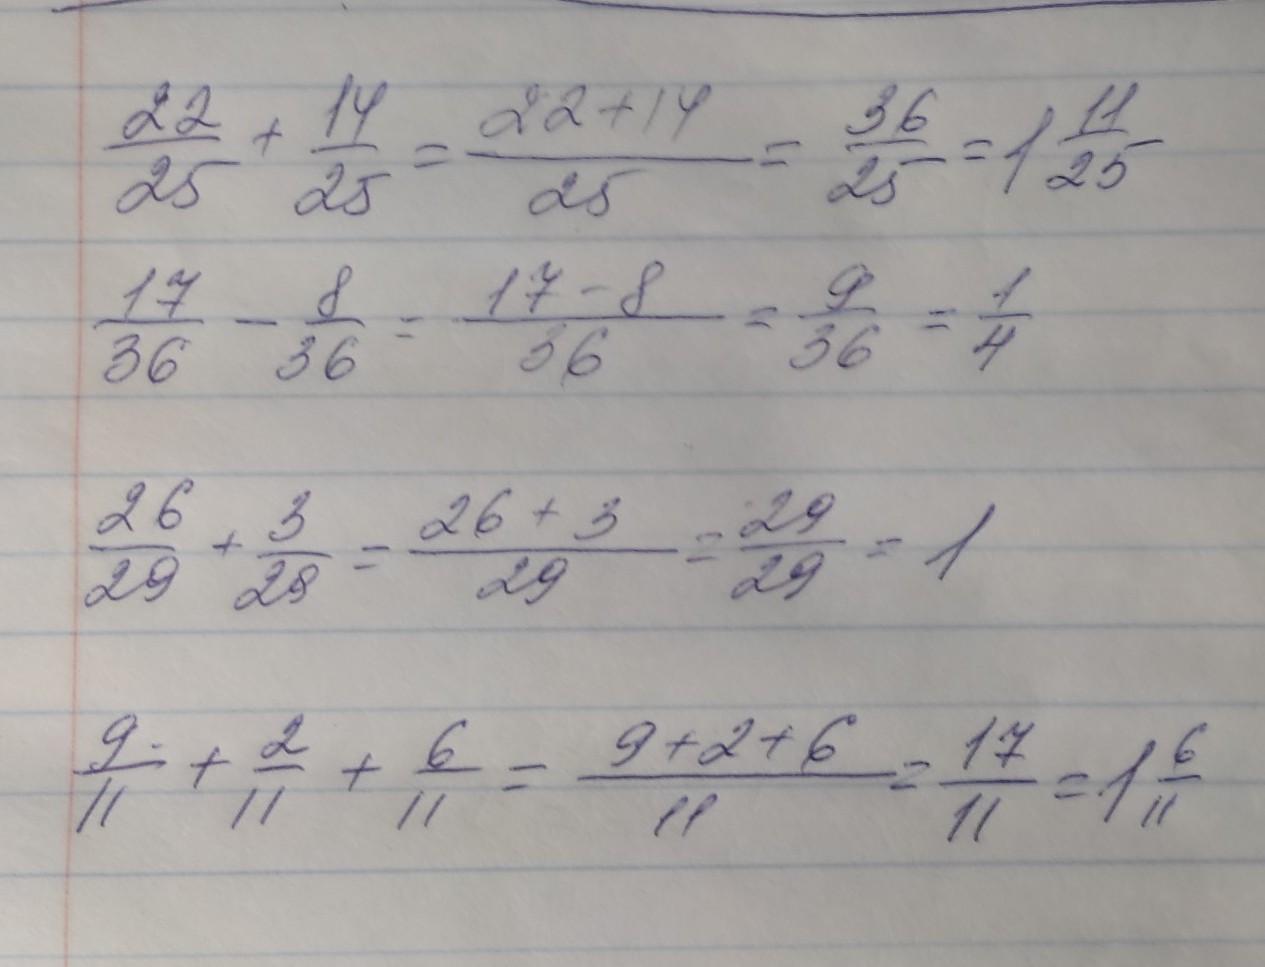 22/25 + 14/25 = (22+14)/25 = 36/25 = 1 11/25
17/36 - 8/36 = (17-8)/36 = 9/36 = 1/4
26/29 + 3/29 = (26+3)/29 = 29/29 = 1
9/11 + 2/11 + 6/11 = (9+2+6)/11 = 17/11 = 1 6/11